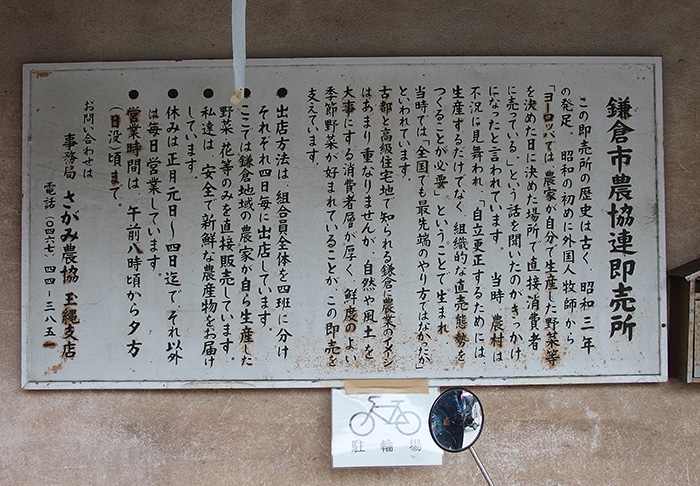 鎌倉市農協連即売所
この即売所の歴史は古く、昭和三年
の発足。昭和の初めに外国人牧師から
「ヨーロッパでは、農家が自分で生産した野菜等
を決めた日に決めた場所で直接消費者
に売っている。」という話を聞いたのがきっかけ
になったと言われています。当時、農村は
不況に見舞われ、「自立更正するためには、
生産するだけでなく、組織的な直売態勢を
つくることが必要」ということで生まれ
当時では、全国でも最先端のやり方ではなかったか
といわれています。
古都と高級住宅地で知られる鎌倉に農業のイメイジ
はあまり重なりませんが、自然や風土を
大事にする消費者層が厚く、鮮度のよい
季節野菜が好まれていることが、この即売を
支えています。
●出店方法は、組合員全体を四班に分け
それぞれ四日毎に出店しています。
●ここでは鎌倉地域の農家が自ら生産した
野菜、花等のみを直接販売しています。
●私達は、安全で新鮮な農産物をお届け
しています。
●休みは正月元日〜四日迄で、それ以外
は毎日営業しています。
●営業時間は、午前八時頃から夕方
(日没)頃まで。
お問い合わせは
事務局 さがみ農協 玉縄支店
電話(〇四六七)四四－三八五一
駐輪場